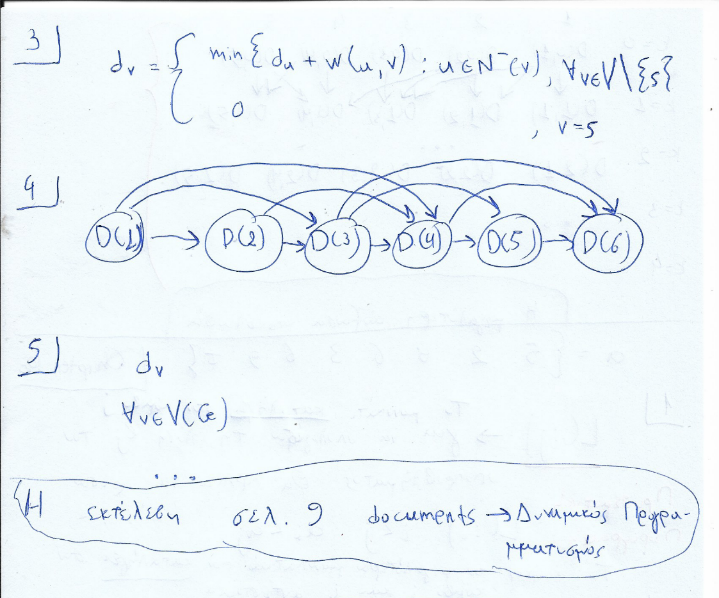 3]
dv = { min{du + w(u,v) : u∈N⁻(v), ∀v∈V\{s}
0 , v=s
4]
D(1) → D(2) → D(3) → D(4) → D(5) → D(6)
5]
dv
∀v∈V(G)
...
Η εκτέλεση σελ. 9 documents → Δυναμικός Προγρα-
μματισμός